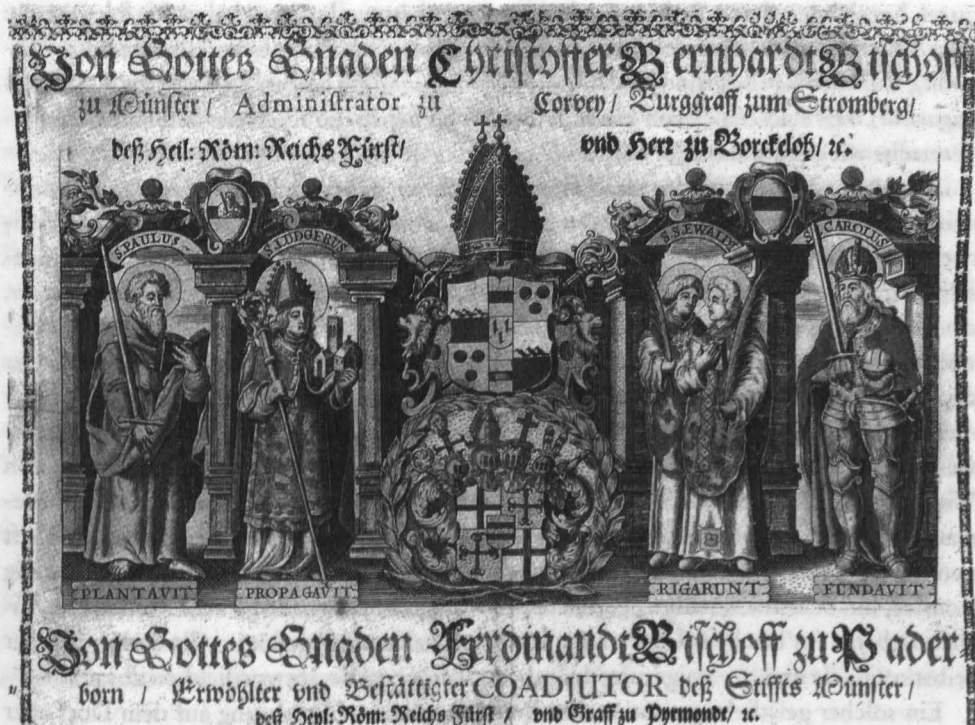 Von Gottes Gnaden Christoffer Bernhardt Bischoff
zu Münster / Administrator zu Corvey / Burggraff zum Stromberg /
deß Heil: Röm: Reichs Fürst / vnd Herr zu Borckeloh / ꝛc.
S. PAULUS
S. LUDGERUS
S.S. EWALDI
S. CAROLUS
PLANTAVIT
PROPAGAVIT
RIGARUNT
FUNDAVIT
Von Gottes Gnaden Ferdinandt Bischoff zu Pader-
born / Erwöhlter vnd Bestättigter COADJUTOR deß Stiffts Münster /
deß Heyl: Röm: Reichs Fürst / vnd Graff zu Pyrmondt / ꝛc.